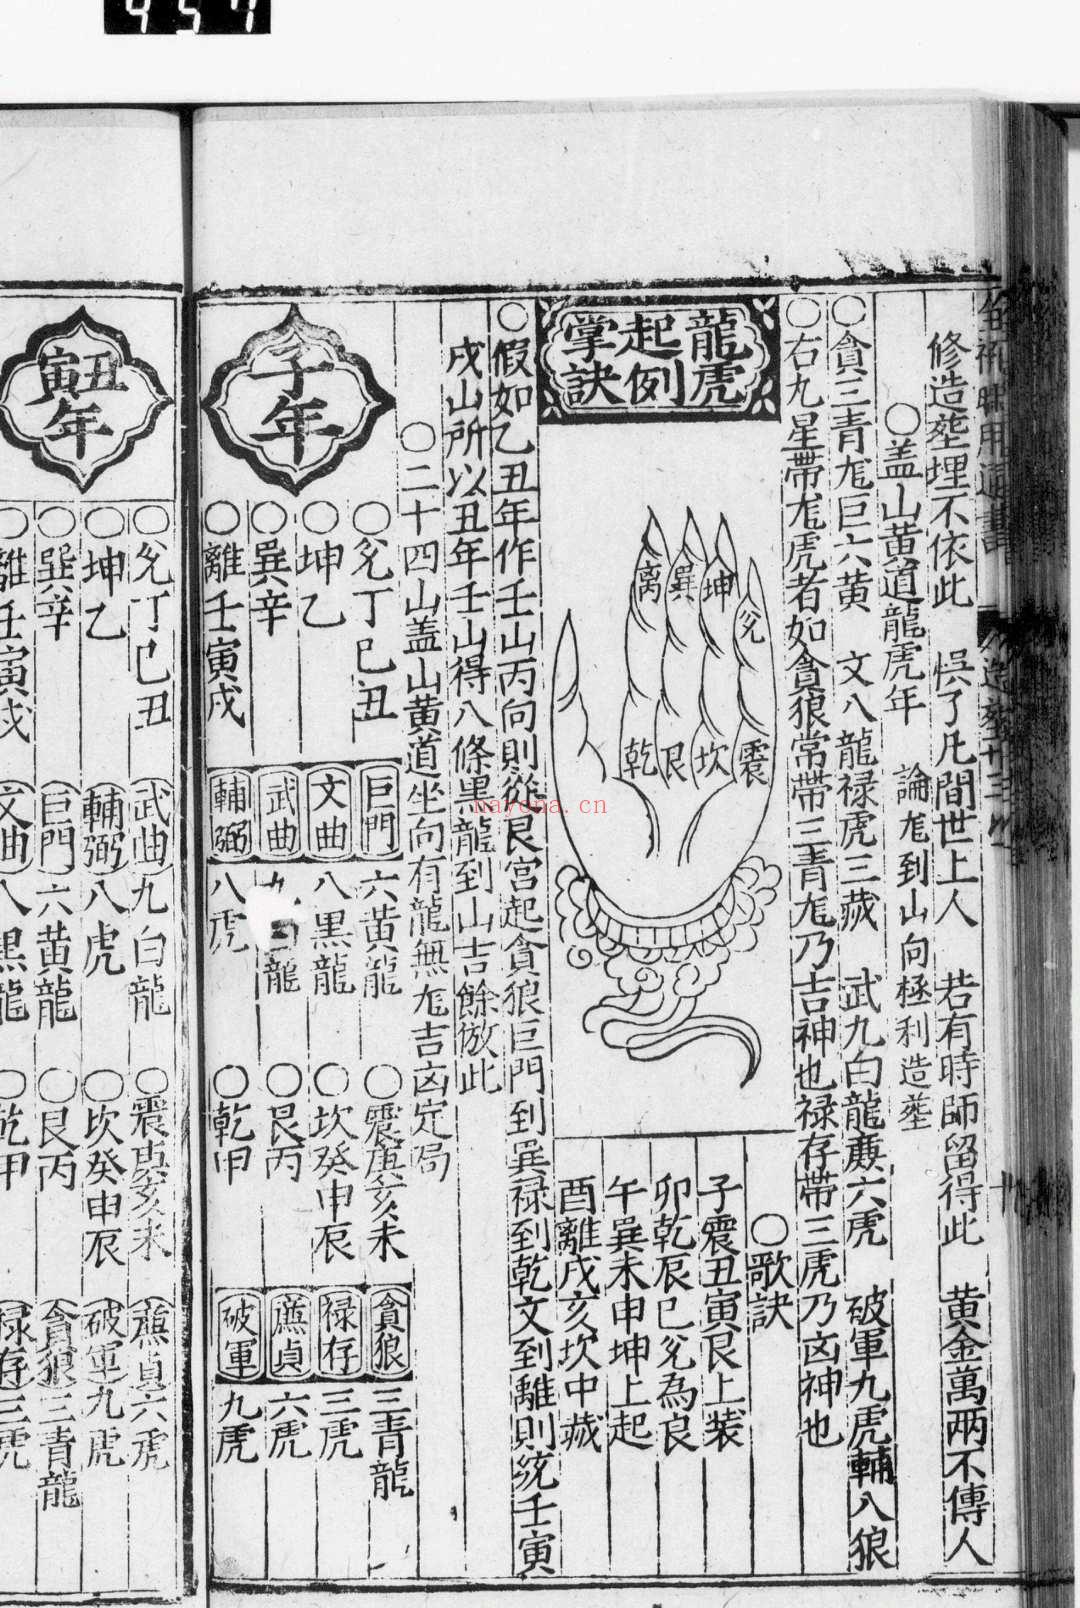 457
修造塟埋不依此　惧了凡間世上人　若有時師留得此　黄金萬两不傳人
○盖山黄道龍虎年　論尨到山向極利造塟
○貪三青尨巨六黄　文八龍禄虎三蔵　武九白龍廉六虎　破軍九虎輔八狼
○右九星帶尨虎者如貪狼常帶三青尨乃吉神也禄存帶三虎乃凶神也
龍虎
起例
掌訣
离 巽 坤 兊
乾 艮 坎 震
○歌訣
子震丑寅艮上装
卯乾辰巳兊為良
午巽未申坤上起
酉離戌亥坎中蔵
○假如乙丑年作壬山丙向則從艮宫起貪狼巨門到巽禄到乾文到離則統壬寅
戌山所以丑年壬山得八條黒龍到山吉餘倣此
○二十四山盖山黄道坐向有龍無尨吉凶定局
子年
○兊丁巳丑　巨門　六黄龍　○震庚亥未　貪狼　三青龍
○坤乙　文曲　八黒龍　○坎癸申辰　禄存　三虎
○巽辛　武曲　龍　○艮丙　廉貞　六虎
○離壬寅戌　輔弼　八虎　○乾甲　破軍　九虎
丑寅年
○兊丁巳丑　武曲　九白龍　○震庚亥未　廉貞　六虎
○坤乙　輔弼　八虎　○坎癸申辰　破軍　九虎
○巽辛　巨門　六黄龍　○艮丙　貪狼　三青龍
○離壬寅戌　文曲　八黒龍　○乾甲　禄存　三虎
nayona.cn